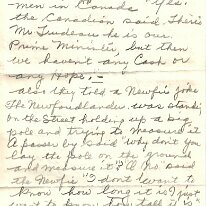 men in Canada "Yes."
the Canadian said. There's
Mr Trudeau he is our
Prime Minister, but then
we haven't any Cash or
any Hope. –
also they told a Newfie joke
The Newfoundlander was standing
on the Street holding up a big
pole and trying to measure it
A passer by said why don't you
lay the pole on the ground
and measure it? A No" said
the Newfie "I don't want to
know how long it is I just
want to know how tall it is"